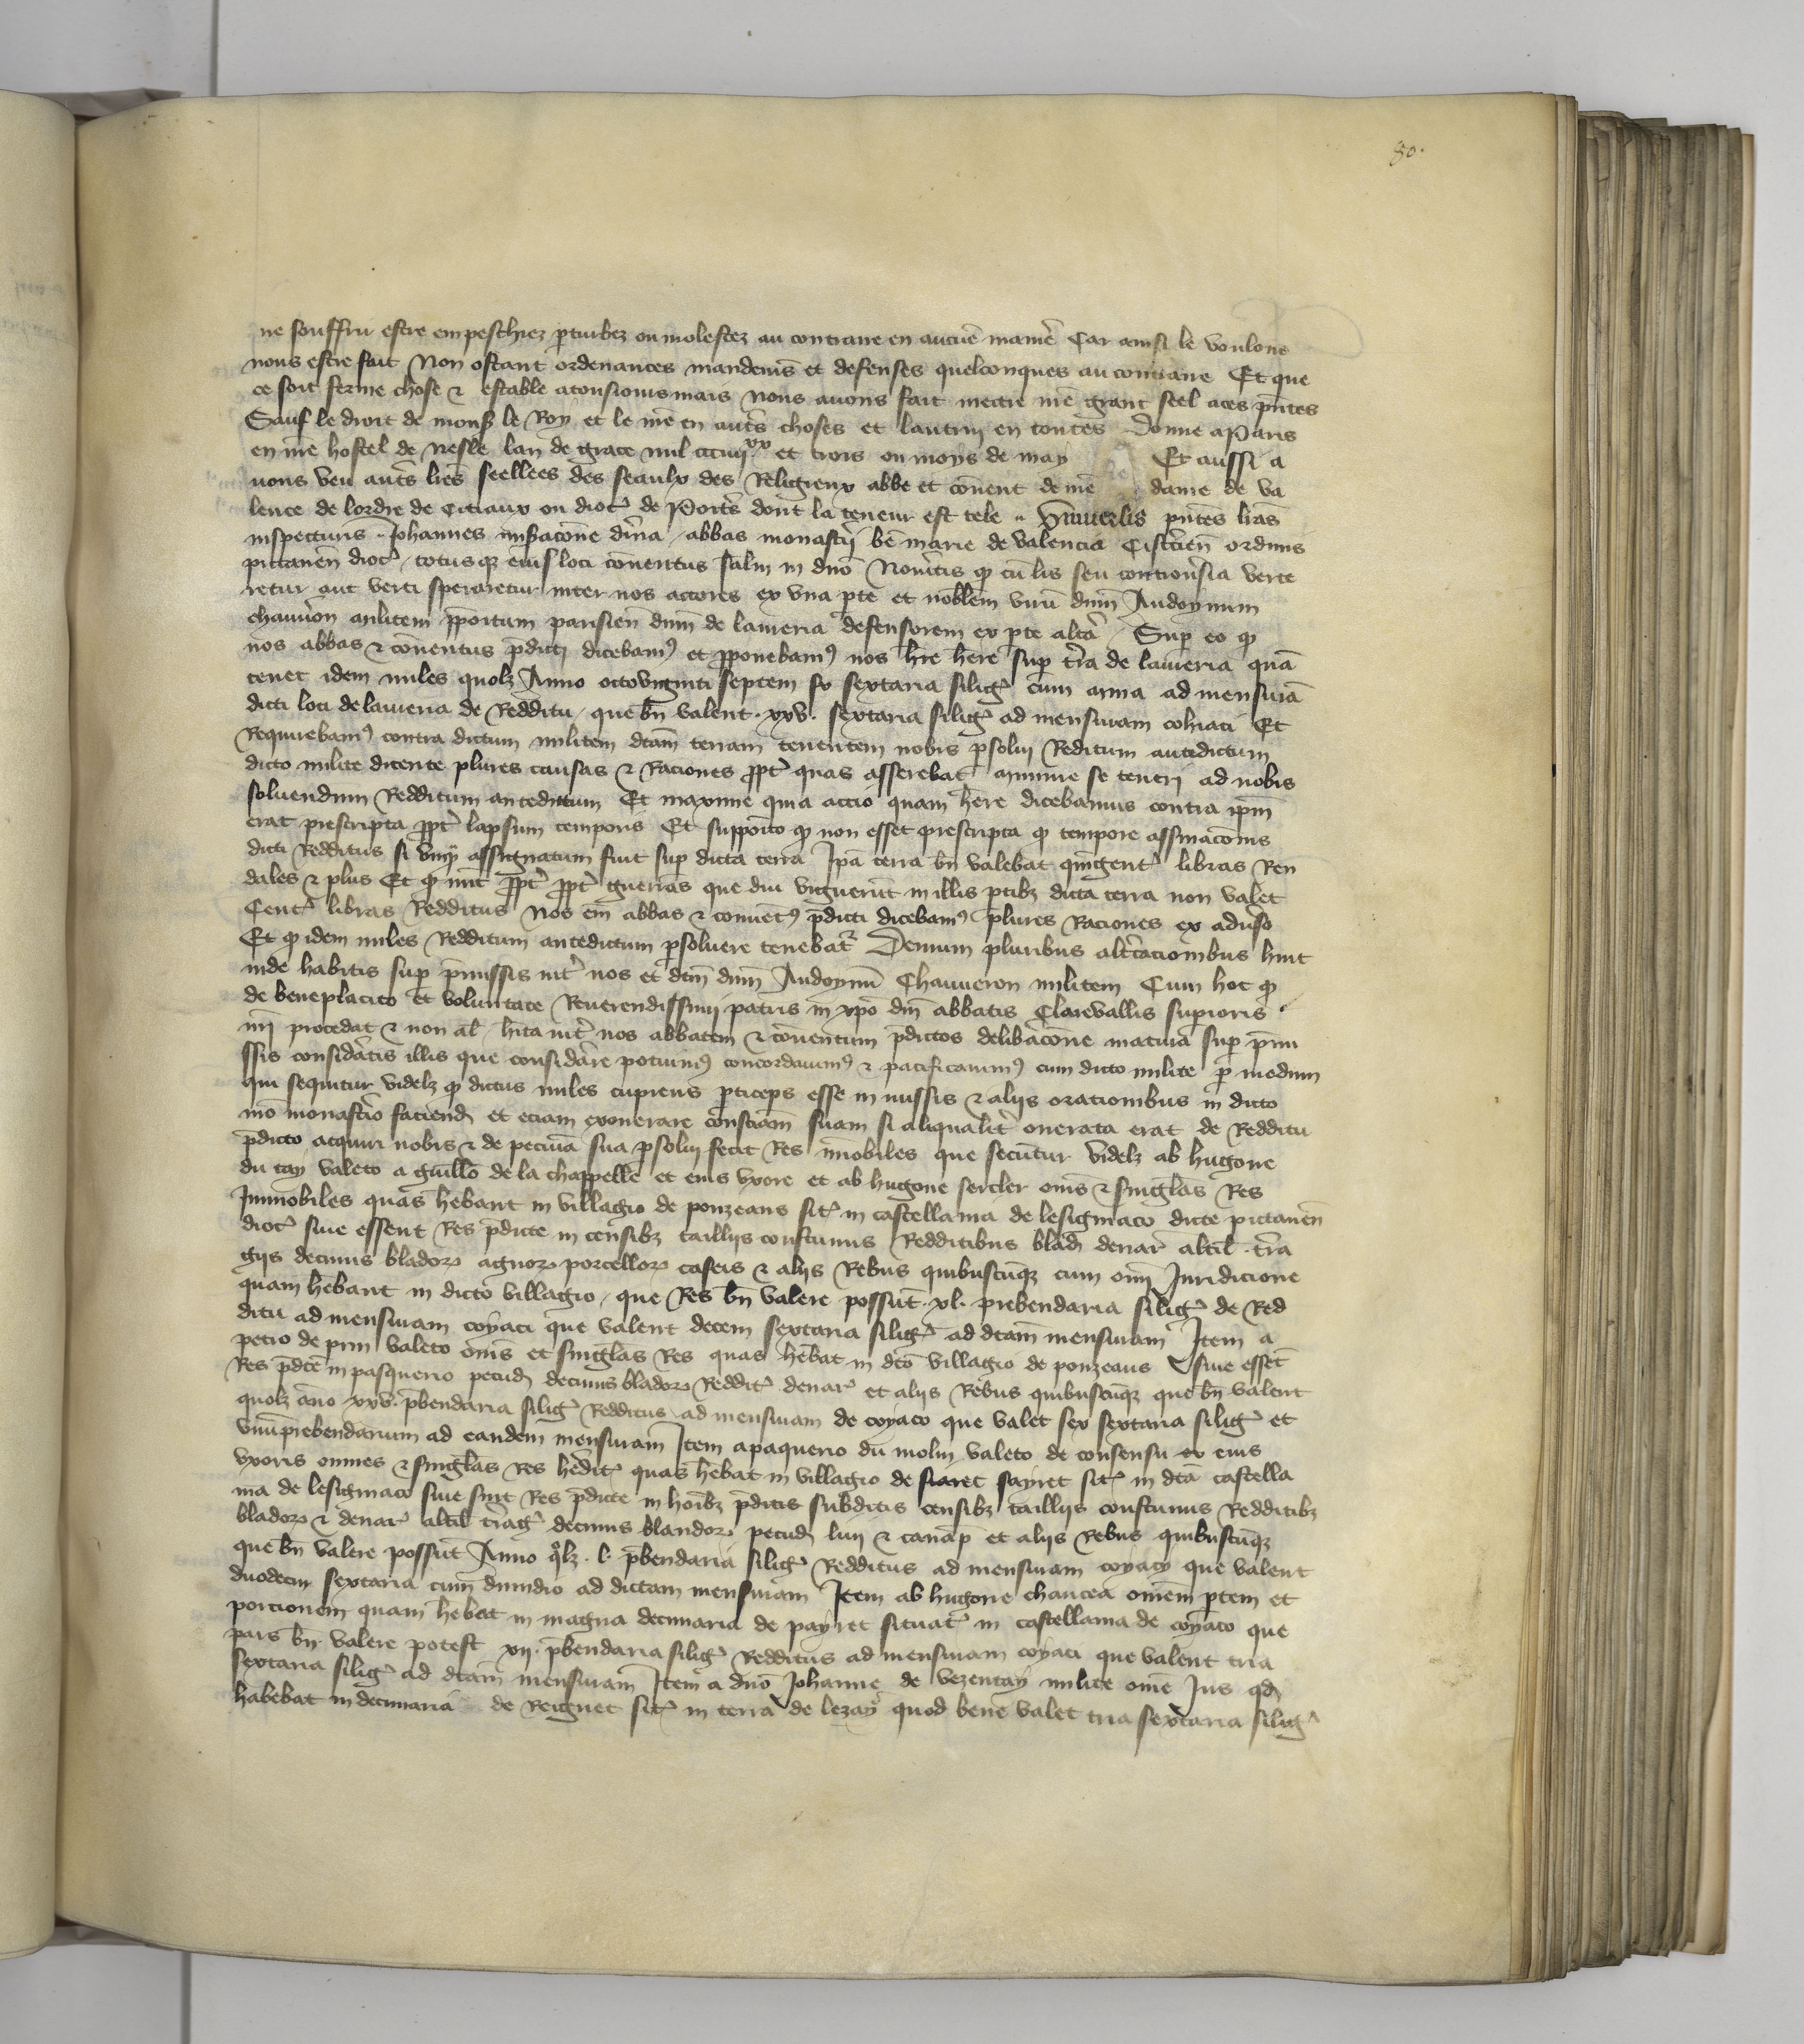 80.
ne souffrir estre empeschiez pturbez ou molestez au contraire en aucue manie Car ainsi le voulons
nous estre fait Non ostant ordenances mandems et defenses quelconques au contraire Et que
ce soit ferme chose & estable atousiours mais Nous auons fait mectre nre grant seel aces pntes
Sauf le droit de mons le Roy et le nre en autres choses et lautruy en toutes Donne a Paris
en nre hostel de Nesle lan de grace mil ccciiii xx et trois ou moys de may Et aussi a
nous veu autres lres seellees des seaulx des Religieux abbe et conent de nre dame de Va
lence de lordre de Citiaux ou dioc de Poit's dont la teneur est tele Vniuersis pntes lras
inspecturis Johannes misacone diuina abbas monastij be marie de Valencia Cistercien ordinis
pictauen dioc totusq eiusd loci conentus salm in dno Noueritis q cu lis seu controuersia verte
retur aut verti speraretur inter nos actores ex vna pte et noblem viru dnm Audoynum
chauuron militem ppoitum parisien dnm de laueria defensorem ex pte alta Sup eo q
nos abbas & conentus pdicti dicebam et pponebam nos hre here sup tra de laueria qua
tenet idem miles quolz Anno octouiginti septem sextaria silig cum mina ad mensura
dicti loci de laueria de Redditu que bn valent xxv sextaria silig ad mensuram cohiaci Et
Requirebam contra dictum militem dtam terram tenentem nobis psolui Reditum antedictum
dicto milite dicente plures causas & Raciones ppt quas asserebat minime se teneri ad nobis
soluendum Redditum antedictum Et maxime quia accio quam here dicebamus contra ipm
erat prescripta ppt lapsum temporis Et supposito q non esset prescripta q tempore assinacois
dicti Redditus si vnq assignatum fuit sup dicta terra Ipa terra bn valebat quigent libras Ren
dales & plus Et q nuc ppt ppt guerras que diu viguerut in illis ptibz dicta terra non valet
Cent libras Redditus Nos em abbas & conuet pdicti dicebam plures Raciones ex aduso
Et q idem miles Redditum antedictum psoluere tenebat Demum pluribus altercacionibus hinc
inde habitis sup pmissis int nos et dtm dnm Audoynu Chauueron militem Cum hoc q
de beneplacito et voluntate Reuerendissimi patris in xpo dni abbatis Clarevallis supioris
nri procedat & non al hita int nos abbatem & conentum pdictos delibacone matura sup pmi
ssis consideratis illis que considare potuim concordauim & pacificauim cum dicto milite p modum
qui sequitur videlz q dictus miles cupiens pticeps esse in missis & alijs orationibus in dicto
nro monastio faciend et eciam exonerare consciam suam si aliqualit onerata erat de Redditu
pdicto acquiri nobis & de pecunia sua psolui fecit Res imobiles que secuntur videlz ab hugone
du tay valeto a guillo de la chappelle et eius vxore et ab hugone sercler omes & singlas Res
Immobiles quas hebant in villagio de ponzeaus sit in castellania de lesigniaco dicte pictauen
dioc siue essent Res pdicte in censibz tailliis constumis Redditibus blad denar altil tra
giis decimis blador agnor porcellor caseis & alijs Rebus quibuscuqz cum omi Juridicione
quam hebant in dicto villagio que Res bn valere possut xl prebendaria silig de Red
ditu ad mensuram coyaci que valent decem sextaria silig ad dtam mensuram Item a
petro de prin valeto omes et singlas Res quas hebat in dto villagio de ponzeaus siue esset
Res pdte in pasquerio pecud decimis blador Reddit denar et alijs Rebus quibuscuqz que bn valent
quolz ano xxv pbendaria silig Redditus ad mensuram de coyaco que valet sex sextaria silig et
vnu prebendarium ad eandem mensuram Item apaquerio du molin valeto de consensu ex eius
vxoris omnes & singlas Res heredit quas hebat in villagio de siaret sayret sit in dta castella
nia de lesigniaco siue sint Res pdicte in hoibz pditis subditis censibz tailliis constumis Redditibz
blador & denar altil terrag decimis blandor pecud lini & canap et alijs Rebus quibuscuqz
que bn valere possut Anno qolz l pbendaria silig Redditus ad mensuram coyacy que valent
duodecim sextaria cum dimidio ad dictam mensuram Item ab hugone chaucea omem ptem et
porcionem quam hebat in magna decimaria de payret situat in castellania de coyaco que
pars bn valere potest xij pbendaria silig Redditus ad mensuram coyaci que valent tria
sextaria silig ad dtam mensuram Item a dno Johanne de Vezencay milite ome Jus qd
habebat in decimaria de Reignet sit in terra de lezay quod bene valet tria sextaria silig